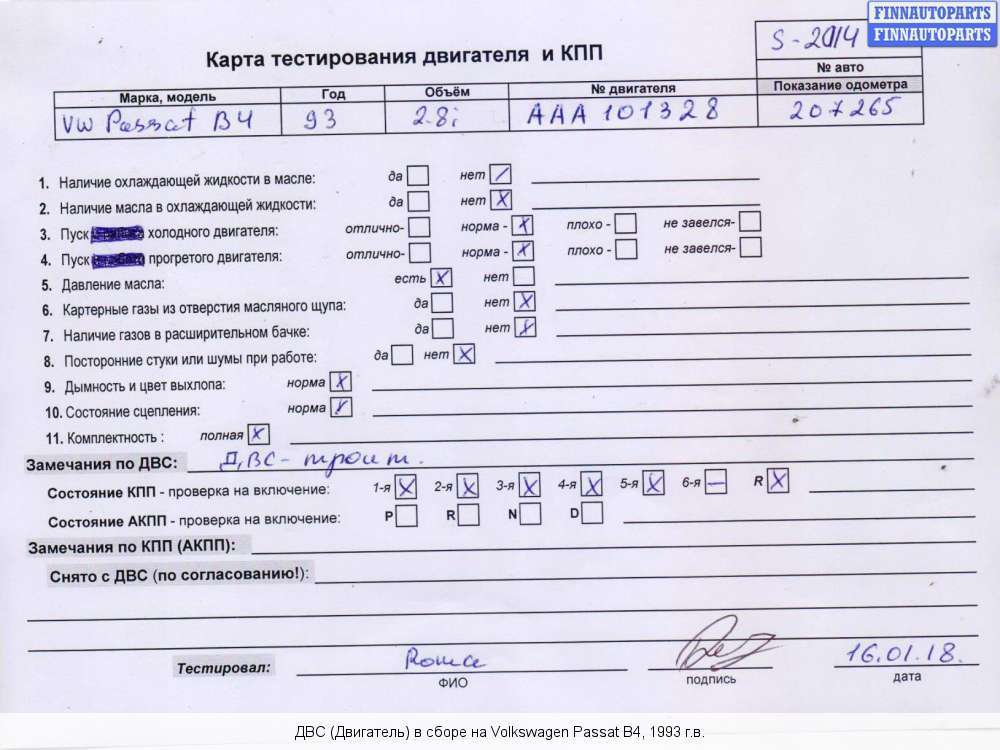 FINNAUTOPARTS
FINNAUTOPARTS
Карта тестирования двигателя и КПП
S-2014
№ авто
Марка, модель Год Объём № двигателя Показание одометра
VW Passat B4 93 2.8i AAA 101328 207265
1. Наличие охлаждающей жидкости в масле: да нет
2. Наличие масла в охлаждающей жидкости: да нет X
3. Пуск холодного двигателя: отлично- норма - X плохо - не завелся-
4. Пуск прогретого двигателя: отлично- норма - X плохо - не завелся-
5. Давление масла: есть X нет
6. Картерные газы из отверстия масляного щупа: да нет X
7. Наличие газов в расширительном бачке: да нет X
8. Посторонние стуки или шумы при работе: да нет X
9. Дымность и цвет выхлопа: норма X
10. Состояние сцепления: норма X
11. Комплектность : полная X
Замечания по ДВС: ДВС - троит.
Состояние КПП - проверка на включение: 1-я X 2-я X 3-я X 4-я X 5-я X 6-я — R X
Состояние АКПП - проверка на включение: P R N D
Замечания по КПП (АКПП):
Снято с ДВС (по согласованию!):
Тестировал: Рома 16.01.18.
ФИО подпись дата
ДВС (Двигатель) в сборе на Volkswagen Passat B4, 1993 г.в.